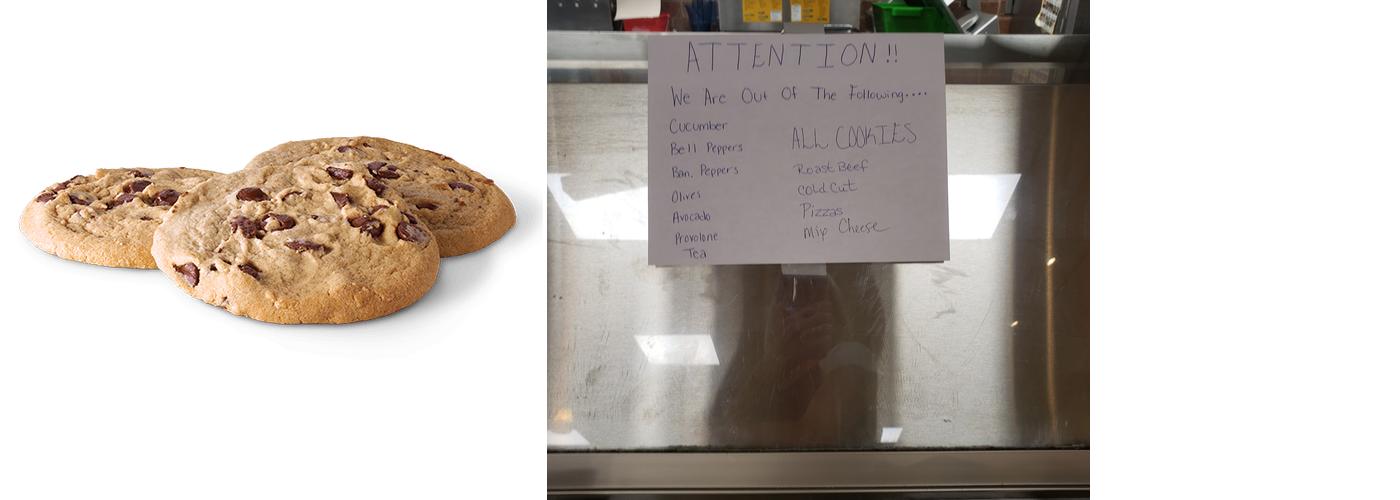 ATTENTION!!
We Are Out Of The Following....
Cucumber
Bell Peppers
Ban. Peppers
Olives
Avocado
Provolone
Tea
ALL COOKIES
Roast Beef
Cold Cut
Pizzas
Mix Cheese